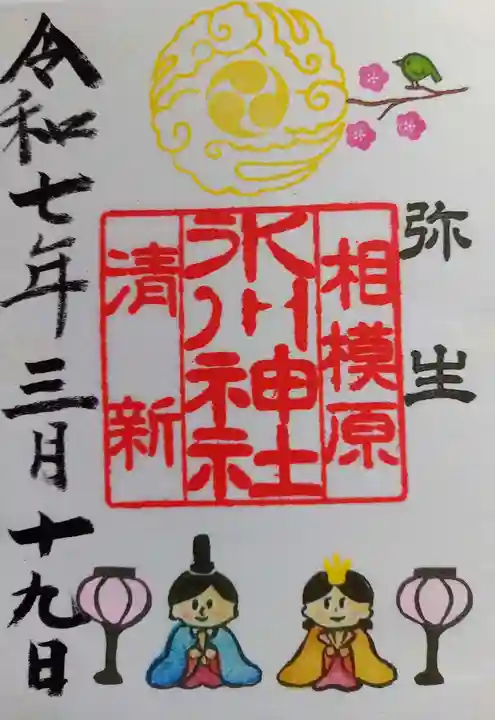 弥生
相模原
氷川神社
清新
令和七年三月十九日